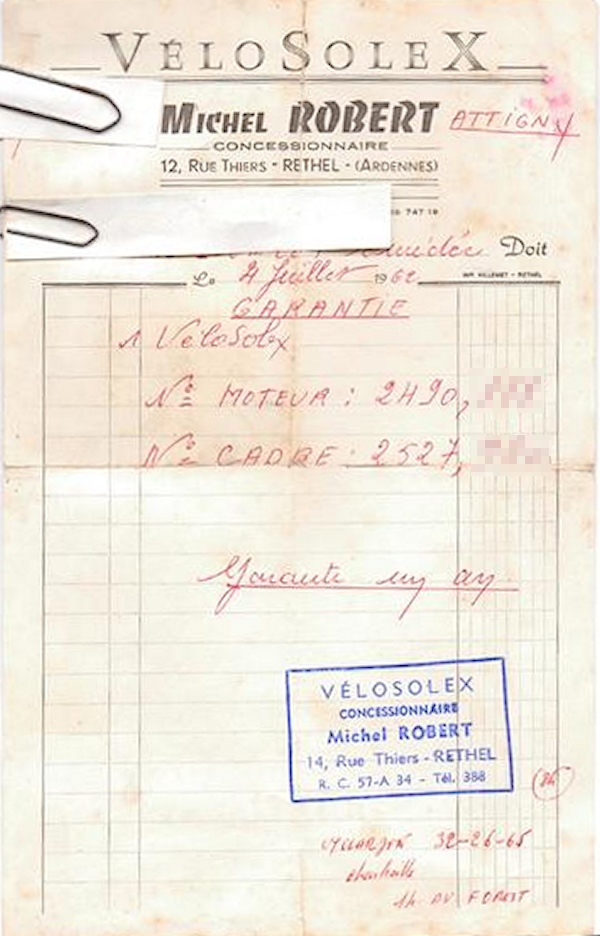 VÉLOSOLEX
MICHEL ROBERT ATTIGNY
CONCESSIONNAIRE
12, RUE THIERS - RETHEL - (ARDENNES)
747 19
Doit
Le 4 Juillet 1962
IMP. VILLEMET - RETHEL
GARANTIE
1 VéloSolex
N° MOTEUR : 2490,
N° CADRE : 2527,
Garantie un an
VÉLOSOLEX
CONCESSIONNAIRE
Michel ROBERT
14, Rue Thiers - RETHEL
R. C. 57-A 34 - Tél. 388
32-26-65
14 AV FOREST